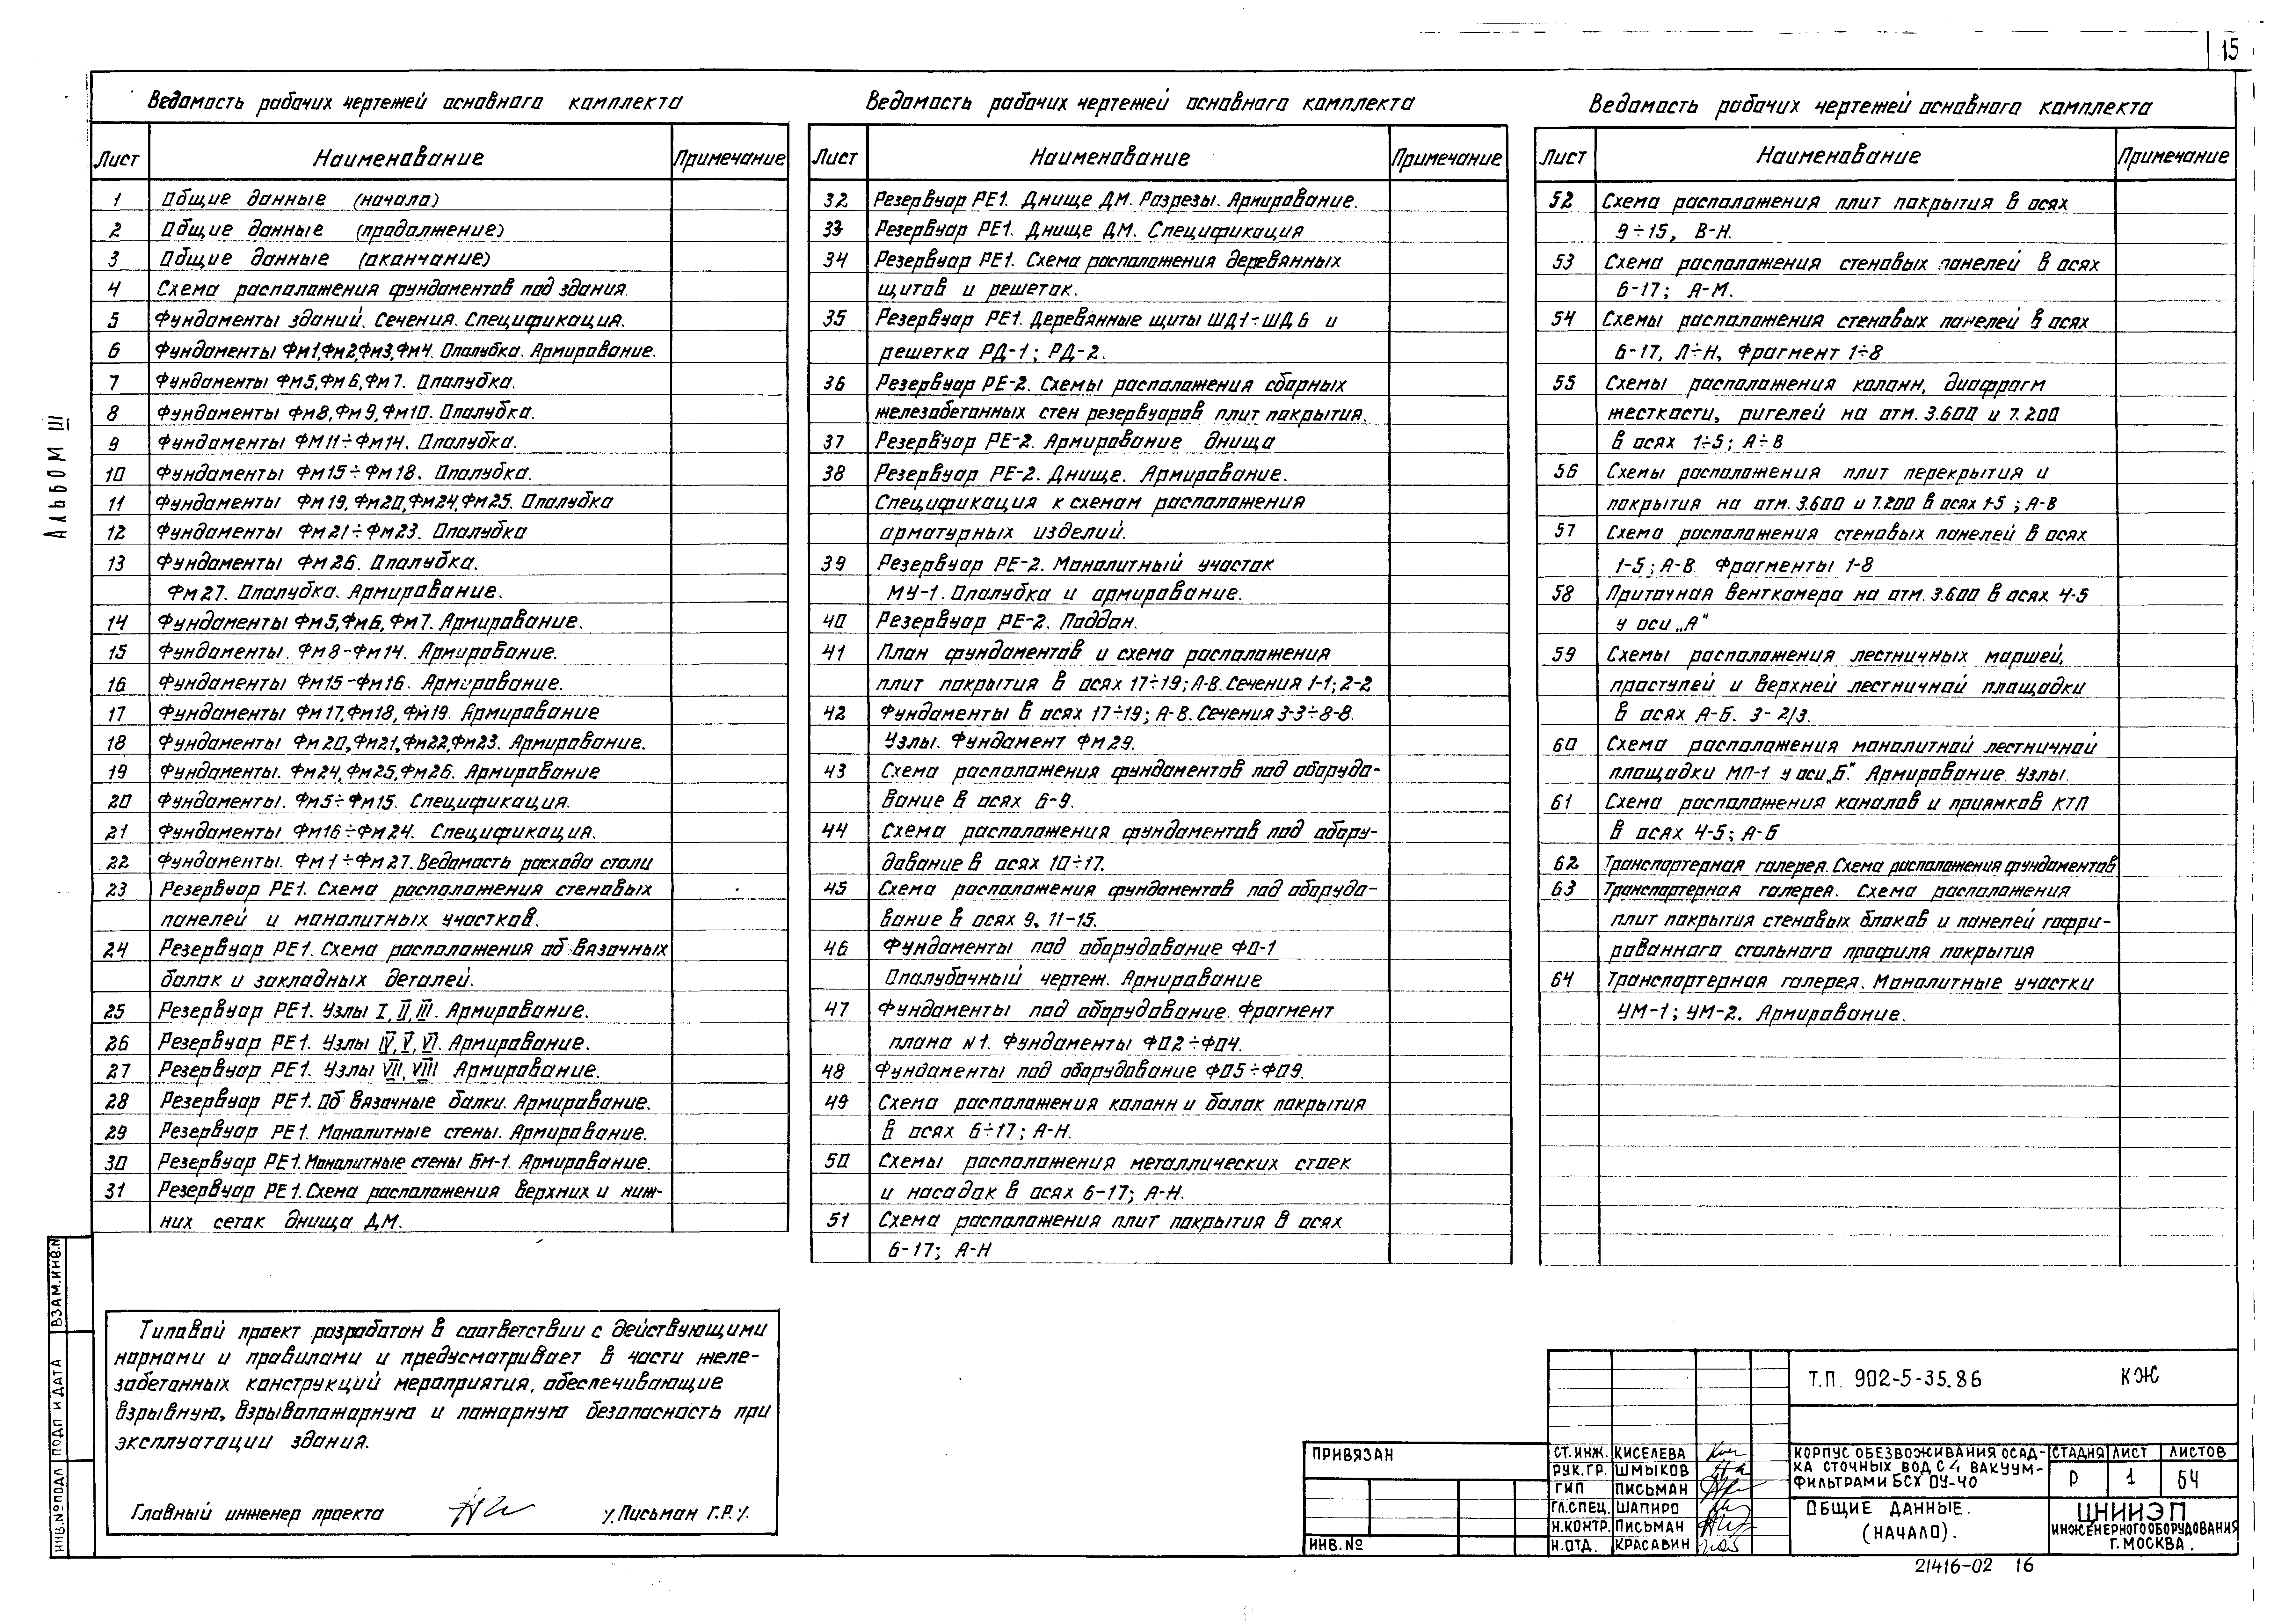 15
АЛЬБОМ III
Ведомость рабочих чертежей основного комплекта
Лист Наименование Примечание
1 Общие данные (начало)
2 Общие данные (продолжение)
3 Общие данные (окончание)
4 Схема расположения фундаментов под здания.
5 Фундаменты зданий. Сечения. Спецификация.
6 Фундаменты Фм1, Фм2, Фм3, Фм4. Опалубка. Армирование.
7 Фундаменты Фм5, Фм6, Фм7. Опалубка.
8 Фундаменты Фм8, Фм9, Фм10. Опалубка.
9 Фундаменты ФМ11÷Фм14. Опалубка.
10 Фундаменты Фм15÷Фм18. Опалубка.
11 Фундаменты Фм19, Фм20, Фм24, Фм25. Опалубка
12 Фундаменты Фм21÷Фм23. Опалубка
13 Фундаменты Фм26. Опалубка.
Фм27. Опалубка. Армирование.
14 Фундаменты Фм5, Фм6, Фм7. Армирование.
15 Фундаменты. Фм8-Фм14. Армирование.
16 Фундаменты Фм15-Фм16. Армирование.
17 Фундаменты Фм17, Фм18, Фм19. Армирование
18 Фундаменты Фм20, Фм21, Фм22, Фм23. Армирование.
19 Фундаменты. Фм24, Фм25, Фм26. Армирование
20 Фундаменты. Фм5÷Фм15. Спецификация.
21 Фундаменты Фм16÷Фм24. Спецификация.
22 Фундаменты. Фм1÷Фм27. Ведомость расхода стали
23 Резервуар РЕ1. Схема расположения стеновых
панелей и монолитных участков.
24 Резервуар РЕ1. Схема расположения обвязочных
балок и закладных деталей.
25 Резервуар РЕ1. Узлы I, II, III. Армирование.
26 Резервуар РЕ1. Узлы IV, V, VI. Армирование.
27 Резервуар РЕ1. Узлы VII, VIII Армирование.
28 Резервуар РЕ1. Обвязочные балки. Армирование.
29 Резервуар РЕ1. Монолитные стены. Армирование.
30 Резервуар РЕ1. Монолитные стены БМ-1. Армирование.
31 Резервуар РЕ1. Схема расположения верхних и ниж-
них сеток днища ДМ.
Ведомость рабочих чертежей основного комплекта
Лист Наименование Примечание
32 Резервуар РЕ1. Днище ДМ. Разрезы. Армирование.
33 Резервуар РЕ1. Днище ДМ. Спецификация
34 Резервуар РЕ1. Схема расположения деревянных
щитов и решеток.
35 Резервуар РЕ1. Деревянные щиты ЩД1÷ЩД6 и
решетка РД-1; РД-2.
36 Резервуар РЕ-2. Схемы расположения сборных
железобетонных стен резервуаров плит покрытия.
37 Резервуар РЕ-2. Армирование днища
38 Резервуар РЕ-2. Днище. Армирование.
Спецификация к схемам расположения
арматурных изделий.
39 Резервуар РЕ-2. Монолитный участок
МУ-1. Опалубка и армирование.
40 Резервуар РЕ-2. Поддон.
41 План фундаментов и схема расположения
плит покрытия в осях 17÷19; А-В. Сечения 1-1; 2-2
42 Фундаменты в осях 17÷19; А-В. Сечения 3-3÷8-8.
Узлы. Фундамент Фм29.
43 Схема расположения фундаментов под оборудо-
вание в осях 6-9.
44 Схема расположения фундаментов под обору-
дование в осях 10÷17.
45 Схема расположения фундаментов под оборудо-
вание в осях 9, 11-15.
46 Фундаменты под оборудование ФО-1
Опалубочный чертеж. Армирование
47 Фундаменты под оборудование. Фрагмент
плана N1. Фундаменты ФО2÷ФО4.
48 Фундаменты под оборудование ФО5÷ФО9.
49 Схема расположения колонн и балок покрытия
в осях 6÷17; А-Н.
50 Схемы расположения металлических стоек
и насадок в осях 6-17; А-Н.
51 Схема расположения плит покрытия в осях
6-17; А-Н
Ведомость рабочих чертежей основного комплекта
Лист Наименование Примечание
52 Схема расположения плит покрытия в осях
9÷15, В-Н.
53 Схема расположения стеновых панелей в осях
6-17; А-М.
54 Схемы расположения стеновых панелей в осях
6-17, Л÷Н, Фрагмент 1÷8
55 Схемы расположения колонн, диафрагм
жесткости, ригелей на отм. 3.600 и 7.200
в осях 1÷5; А÷В
56 Схемы расположения плит перекрытия и
покрытия на отм. 3.600 и 7.200 в осях 1-5; А-В
57 Схема расположения стеновых панелей в осях
1-5; А-В. Фрагменты 1-8
58 Приточная венткамера на отм. 3.600 в осях 4-5
у оси „А"
59 Схемы расположения лестничных маршей,
проступей и верхней лестничной площадки
в осях А-Б. 3-2/3.
60 Схема расположения монолитной лестничной
площадки МП-1 у оси „Б". Армирование. Узлы.
61 Схема расположения каналов и приямков КТП
в осях 4-5; А-Б
62 Транспортерная галерея. Схема расположения фундаментов
63 Транспортерная галерея. Схема расположения
плит покрытия стеновых блоков и панелей гофри-
рованного стального профиля покрытия
64 Транспортерная галерея. Монолитные участки
УМ-1; УМ-2. Армирование.
Типовой проект разработан в соответствии с действующими
нормами и правилами и предусматривает в части желе-
зобетонных конструкций мероприятия, обеспечивающие
взрывную, взрывопожарную и пожарную безопасность при
эксплуатации здания.
Главный инженер проекта Письман Г.Р.
ВЗАМ.ИНВ.N
ПОДП И ДАТА
ИНВ.№ПОДЛ
ПРИВЯЗАН
ИНВ.№
СТ.ИНЖ. КИСЕЛЕВА
РУК.ГР. ШМЫКОВ
ГИП ПИСЬМАН
ГЛ.СПЕЦ. ШАПИРО
Н.КОНТР. ПИСЬМАН
Н.ОТД. КРАСАВИН
Т.П. 902-5-35.86 КЖ
КОРПУС ОБЕЗВОЖИВАНИЯ ОСАД-
КА СТОЧНЫХ ВОД С 4 ВАКУУМ-
ФИЛЬТРАМИ БСХ ОУ-40
СТАДИЯ ЛИСТ ЛИСТОВ
Р 1 64
ОБЩИЕ ДАННЫЕ.
(НАЧАЛО).
ЦНИИЭП
ИНЖЕНЕРНОГО ОБОРУДОВАНИЯ
Г. МОСКВА.
21416-02 16